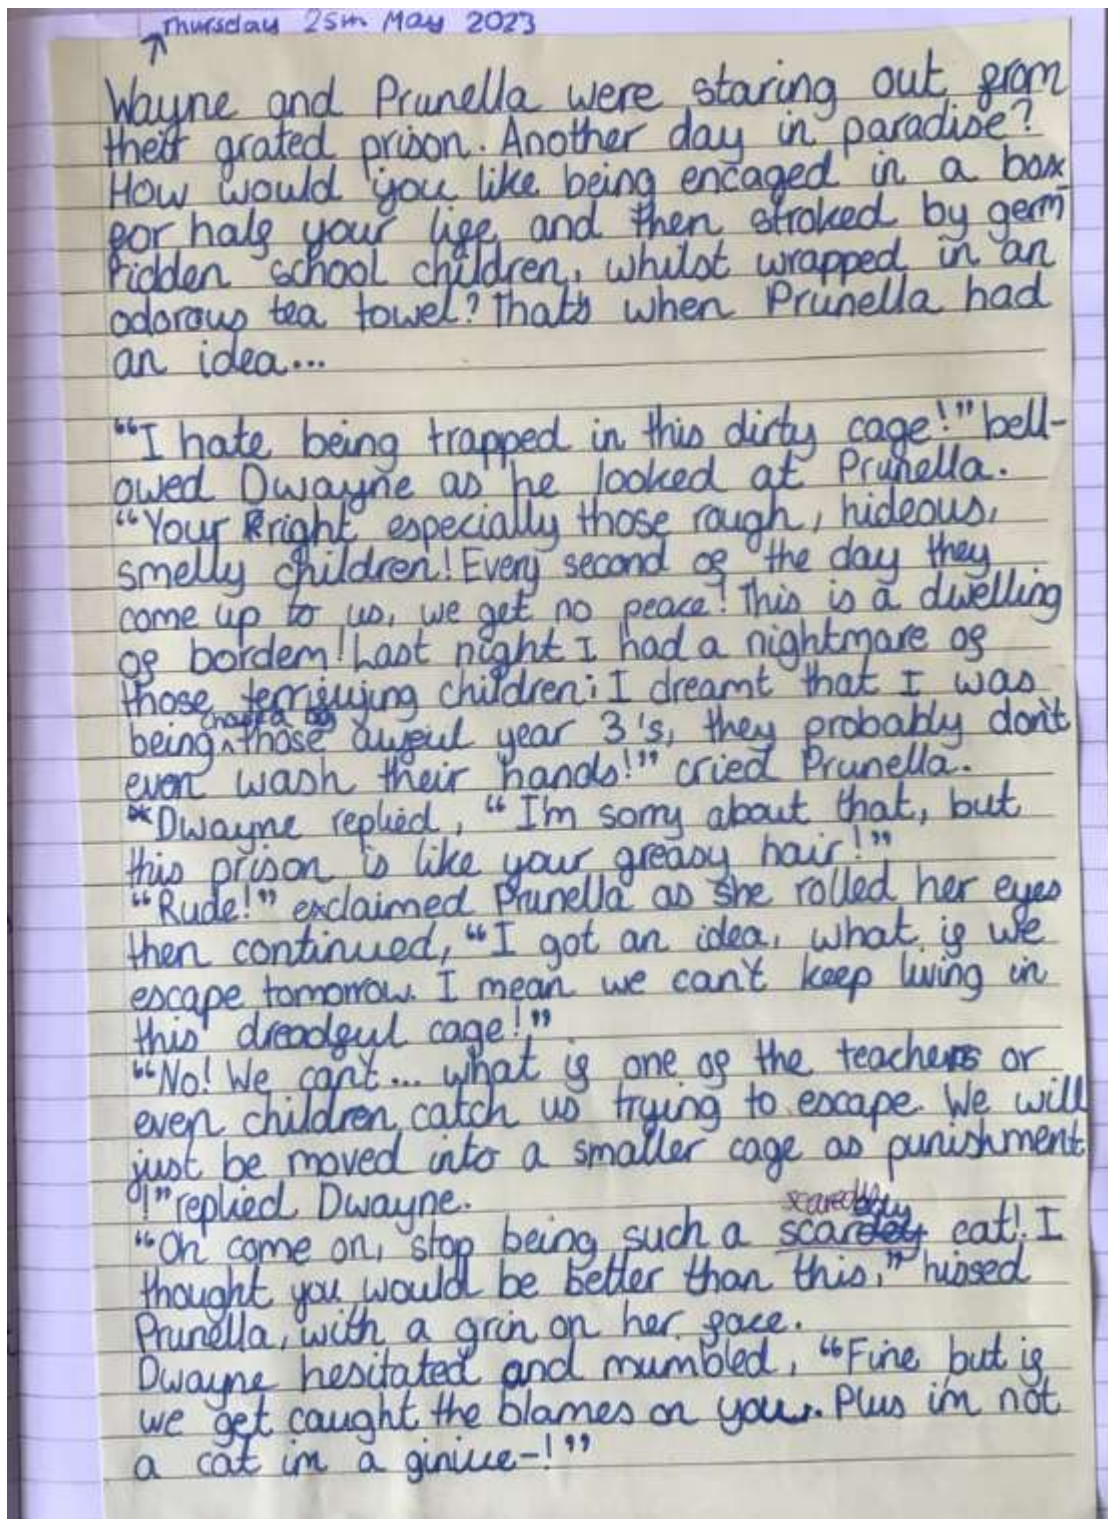 Thursday 25th May 2023
Wayne and Prunella were staring out from
their grated prison. Another day in paradise?
How would you like being encaged in a box
for half your life, and then stroked by germ
ridden school children, whilst wrapped in an
odorous tea towel? That's when Prunella had
an idea...
“I hate being trapped in this dirty cage!” bell-
owed Dwayne as he looked at Prunella.
“Your right especially those rough, hideous,
smelly children! Every second of the day they
come up to us, we get no peace! This is a dwelling
of bordem! Last night I had a nightmare of
those terrifiying children: I dreamt that I was
being chased by those awful year 3's, they probably don't
even wash their hands!” cried Prunella.
*Dwayne replied, “I'm sorry about that, but
this prison is like your greasy hair!”
“Rude!” exclaimed Prunella as she rolled her eyes
then continued, “I got an idea, what if we
escape tomorrow. I mean we can't keep living in
this dreadful cage!”
“No! We can't... what if one of the teachers or
even children catch us trying to escape. We will
just be moved into a smaller cage as punishment
!” replied Dwayne.
“Oh come on, stop being such a cat! I
thought you would be better than this,” hissed
Prunella, with a grin on her face.
Dwayne hesitated and mumbled, “Fine but if
we get caught the blames on you. Plus im not
a cat im a -!”